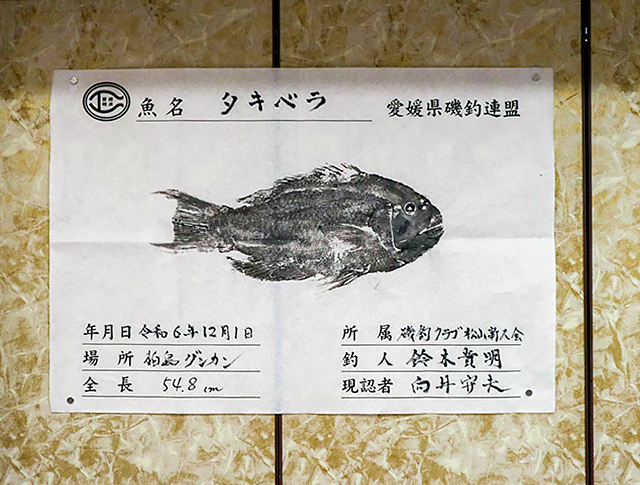 魚名 タキベラ
愛媛県磯釣連盟
年月日 令和6年12月1日
場所 柏島グンカン
全長 54.8cm
所属 磯釣クラブ松山南人会
釣人 鈴木貴明
現認者 向井守夫